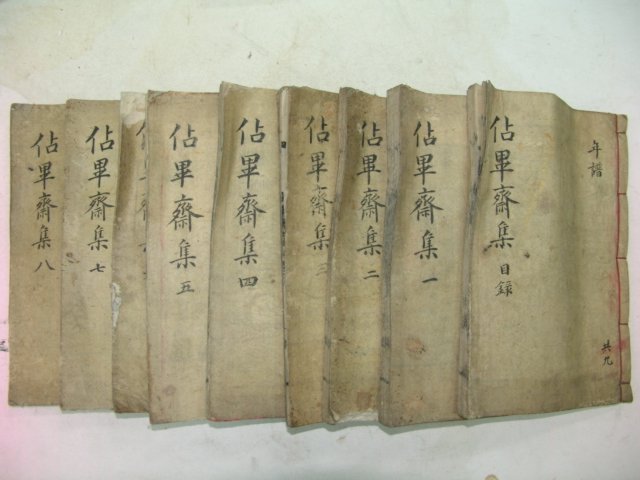 年譜
共九
佔畢齋集 目録
佔畢齋集 一
佔畢齋集 二
佔畢齋集 三
佔畢齋集 四
佔畢齋集 五
佔畢齋集 七
佔畢齋集 八